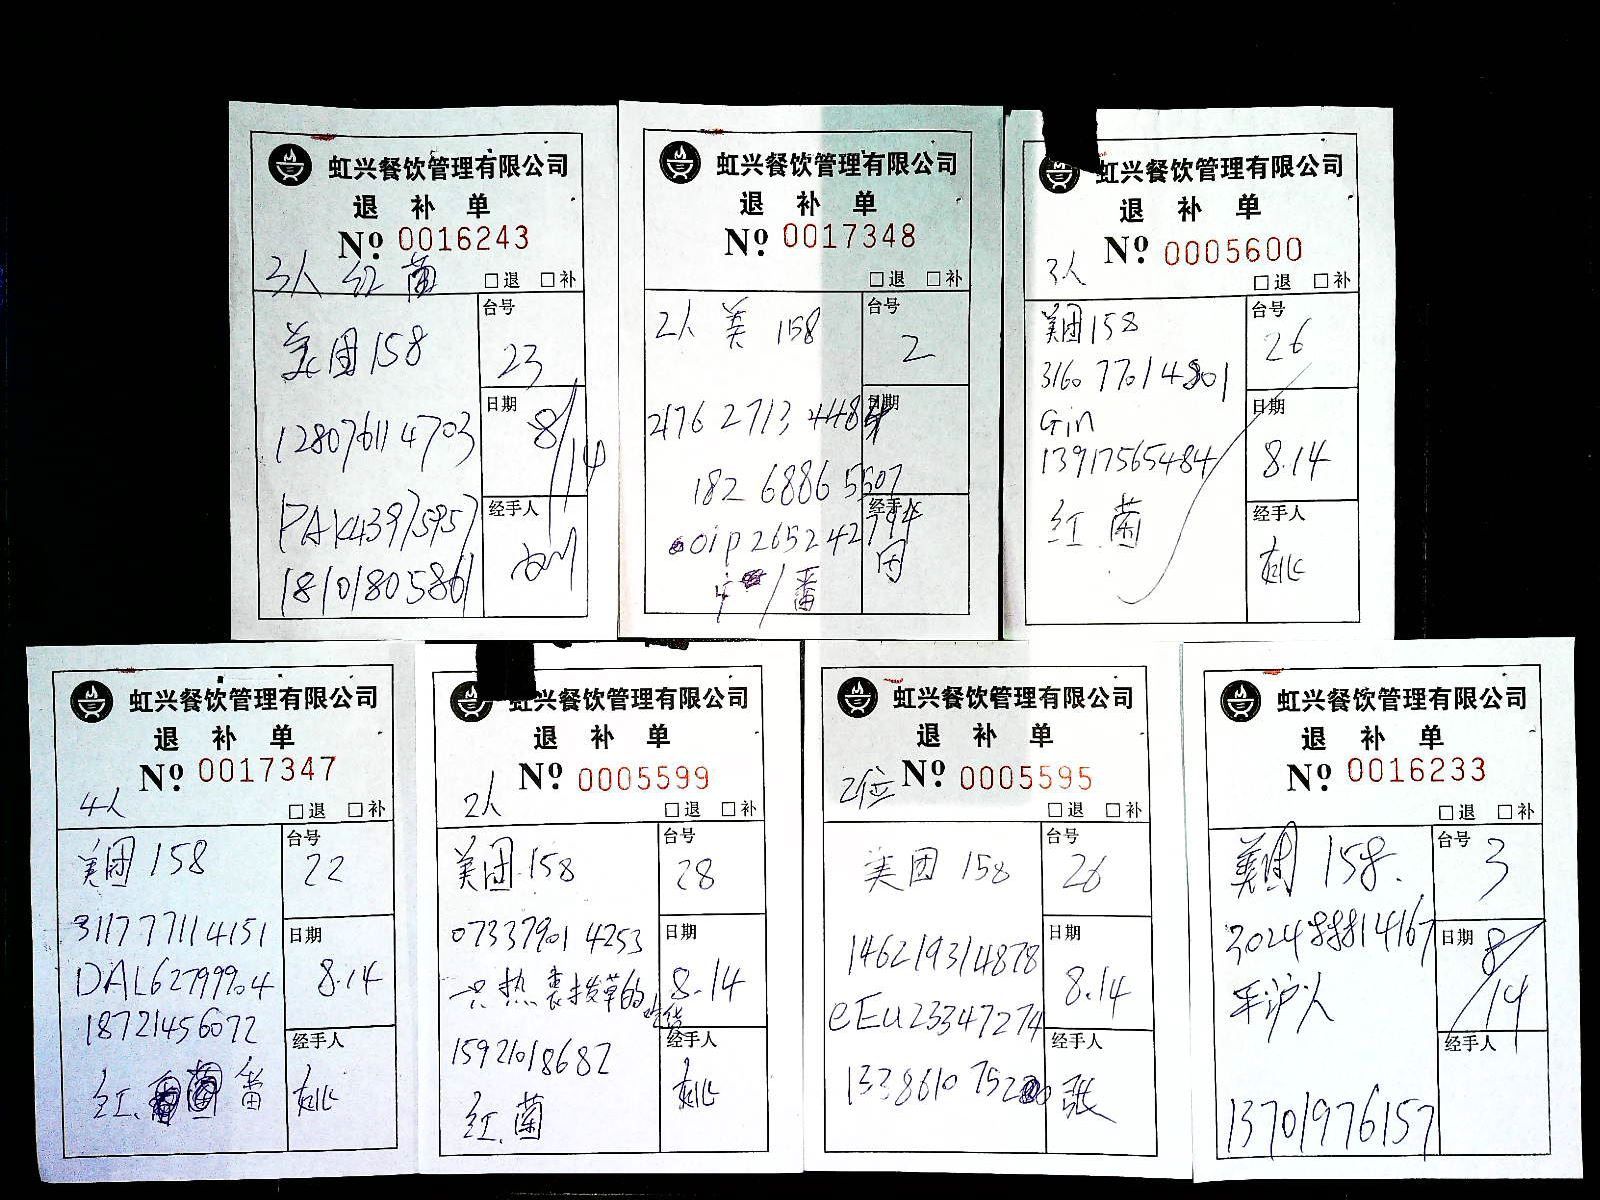 虹兴餐饮管理有限公司
退 补 单
Nº 0016243
3人 红 菌
□退 □补
台号
美团158
23
日期
8/14
128076114703
PAK43975957
经手人
18101805861
虹兴餐饮管理有限公司
退 补 单
Nº 0017348
□退 □补
2人 美 158
台号
2
日期
2176 2713 4484
182 6886 5507
经手人
oip265242794
/番
虹兴餐饮管理有限公司
退 补 单
Nº 0005600
3人
□退 □补
美团158
台号
26
3160 77014801
日期
Gin
13917565484
8.14
经手人
红.菌
虹兴餐饮管理有限公司
退 补 单
Nº 0017347
4人
□退 □补
台号
美团 158
22
311777114151
日期
DAL62799904
8.14
18721456072
经手人
红. 番
虹兴餐饮管理有限公司
退 补 单
Nº 0005599
2人
□退 □补
台号
美团.158
28
07337901 4253
日期
8.14
15921018682
经手人
红.菌
虹兴餐饮管理有限公司
退 补 单
2位 Nº 0005595
□退 □补
台号
美团 158
26
日期
146219314878
8.14
eEu23347274
经手人
张
虹兴餐饮管理有限公司
退 补 单
Nº 0016233
□退 □补
台号
美团 158.
3
302488814167
日期
8/14
沪人
经手人
13701976157